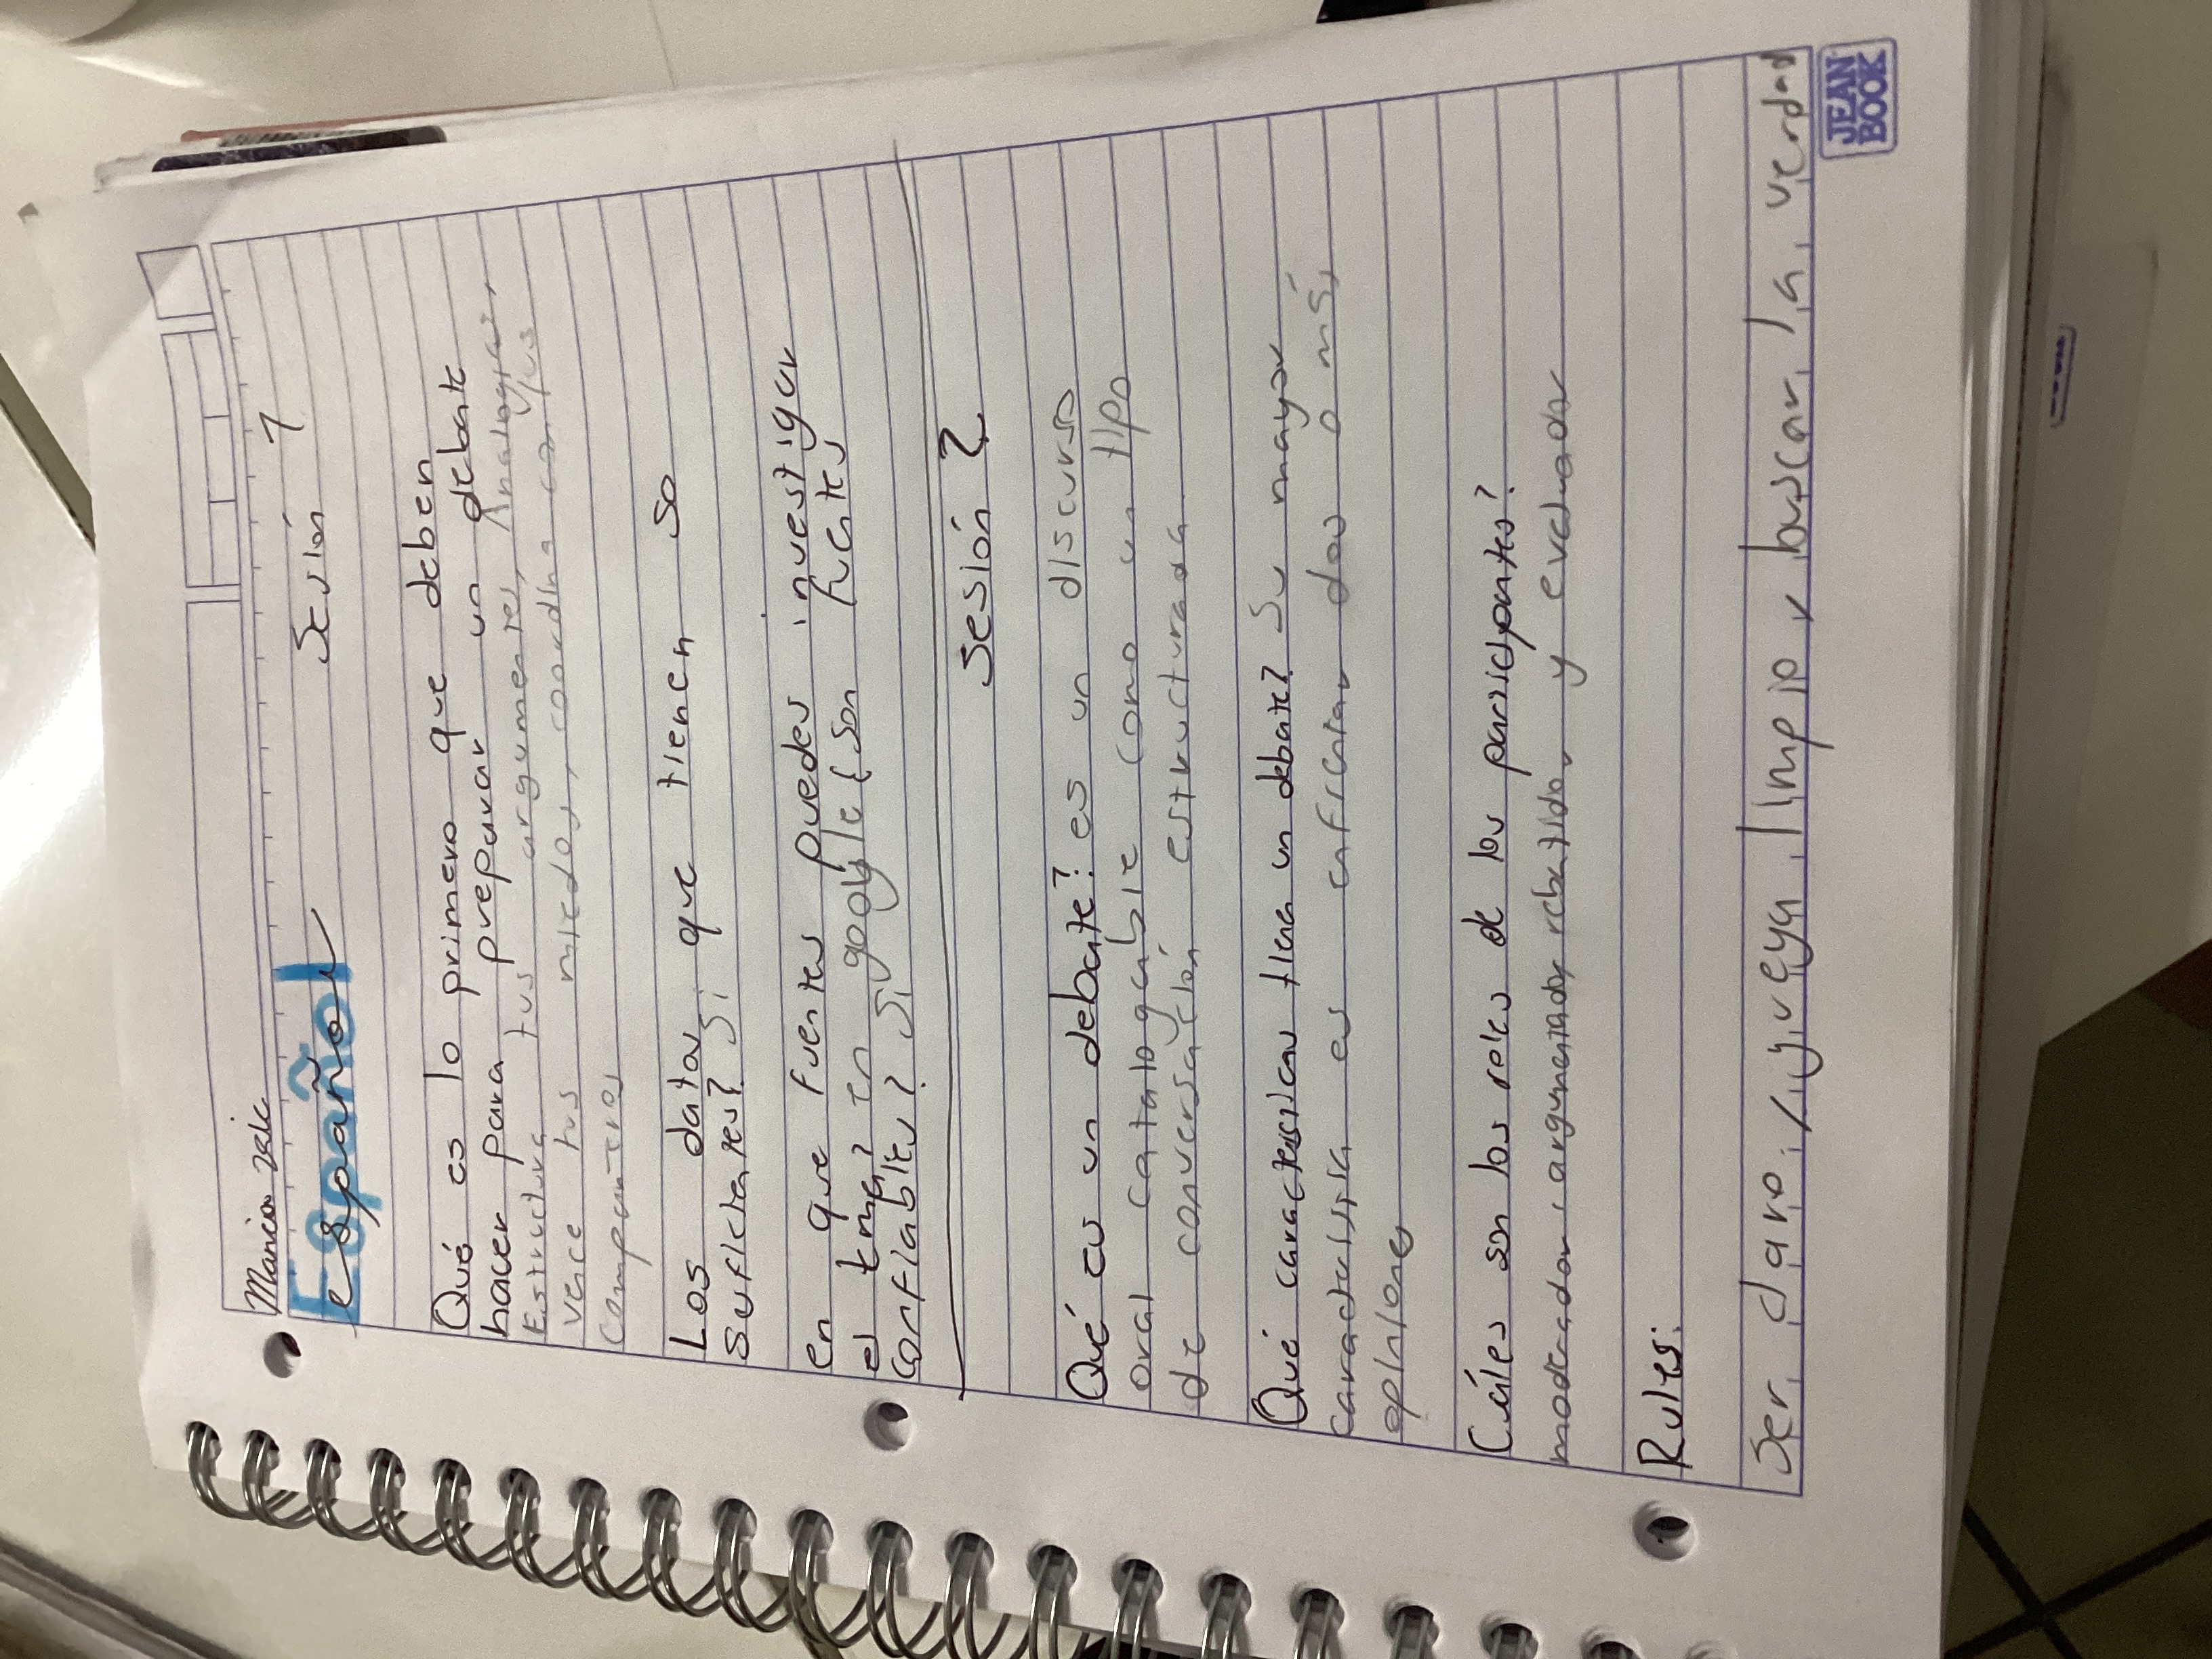 español
Sesión 1
Qué es lo primero que deben
hacer para preparar un debate
Estructura tus argumentos, Analogías,
vence tus miedos, coordina con tus
compañeros
Los datos que tienen so
suficientes? Si
en que fuentes puedes investigar
el tema? en google ¿Son fuentes
confiables? Si
Sesión 2
Qué es un debate? es un discurso
oral catalogable como un tipo
de conversación estructurada
Qué caracteristicas tiene un debate? Su mayor
caracteristica es enfrentar dos o más
opiniones
Cuáles son los roles de los participantes?
moderador, argumentador, rebatidor y evaluador
Rules:
Ser claro, juega limpio, buscar la verdad
JEAN
BOOK